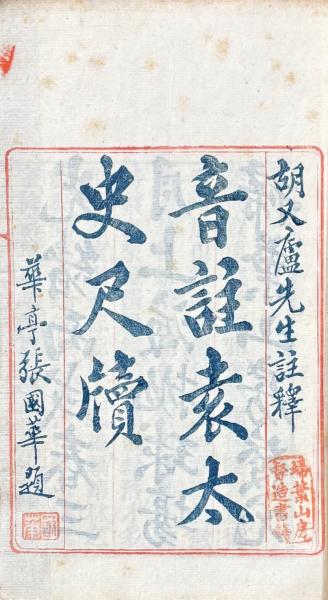 胡又廬先生註釋
音註袁太
史尺牘
華亭張國華題
掃葉山房
督造書籍